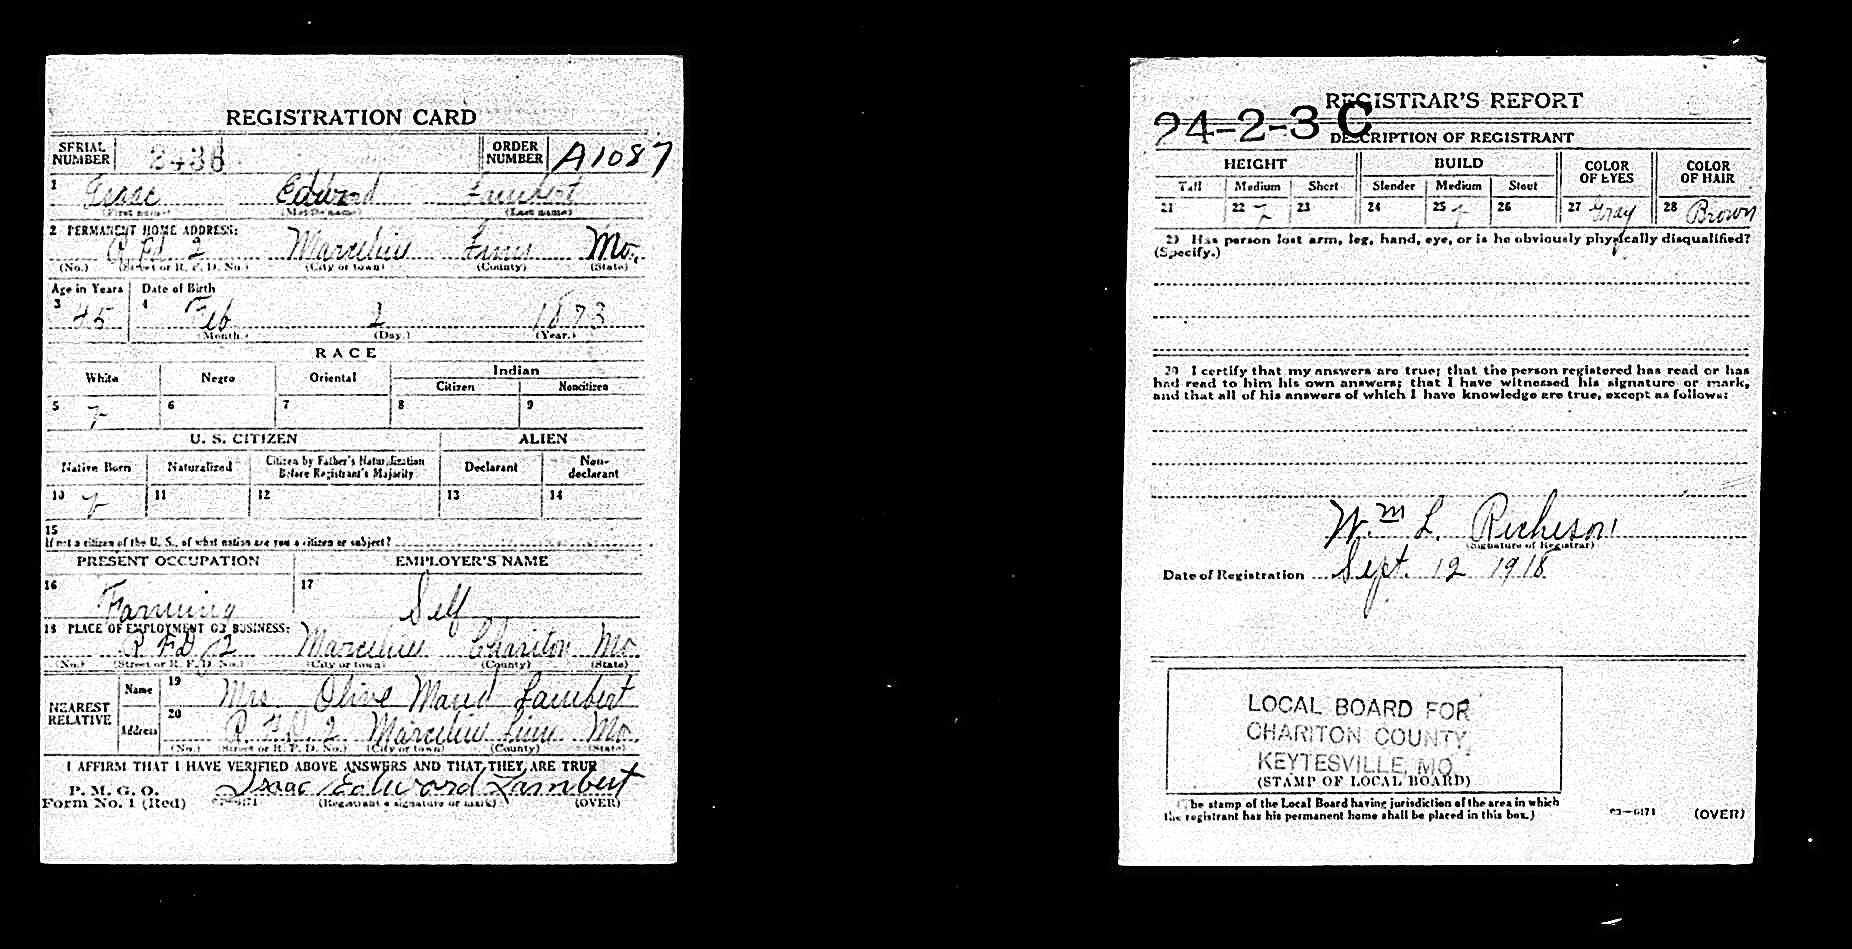 REGISTRATION CARD
SERIAL NUMBER 2438 ORDER NUMBER A1087
1 Isaac Edward Lambert
(First name) (Middle name) (Last name)
2 PERMANENT HOME ADDRESS:
R Fd 2 Marceline Linn Mo.
(No.) (Street or R. F. D. No.) (City or town) (County) (State)
Age in Years Date of Birth
3 45 4 Feb 2 1873
(Month.) (Day.) (Year.)
RACE
White Negro Oriental Indian
Citizen Noncitizen
5 6 7 8 9
U. S. CITIZEN ALIEN
Native Born Naturalized Citizen by Father's Naturalization Before Registrant's Majority Declarant Non-declarant
10 11 12 13 14
15
If not a citizen of the U. S., of what nation are you a citizen or subject?
PRESENT OCCUPATION EMPLOYER'S NAME
16 Farming 17 Self
18 PLACE OF EMPLOYMENT OR BUSINESS:
R FD 2 Marceline Chariton Mo
(No.) (Street or R. F. D. No.) (City or town) (County) (State)
NEAREST RELATIVE
Name 19 Mrs. Olive Maud Lambert
Address 20 R. F.D. 2 Marceline Linn Mo.
(No.) (Street or R. F. D. No.) (City or town) (County) (State)
I AFFIRM THAT I HAVE VERIFIED ABOVE ANSWERS AND THAT THEY ARE TRUE
P. M. G. O.
Form No. 1 (Red) Isaac Edward Lambert
(Registrant's signature or mark) (OVER)
REGISTRAR'S REPORT
24-2-3 C
DESCRIPTION OF REGISTRANT
HEIGHT BUILD COLOR OF EYES COLOR OF HAIR
Tall Medium Short Slender Medium Stout
21 22 23 24 25 26 27 Gray 28 Brown
29 Has person lost arm, leg, hand, eye, or is he obviously physically disqualified?
(Specify.)
30 I certify that my answers are true; that the person registered has read or has
had read to him his own answers; that I have witnessed his signature or mark,
and that all of his answers of which I have knowledge are true, except as follows:
Wm L. Richeson
(Signature of Registrar)
Date of Registration Sept. 12 1918
LOCAL BOARD FOR
CHARITON COUNTY,
KEYTESVILLE, MO
(STAMP OF LOCAL BOARD)
(The stamp of the Local Board having jurisdiction of the area in which
the registrant has his permanent home shall be placed in this box.)
03—6171 (OVER)